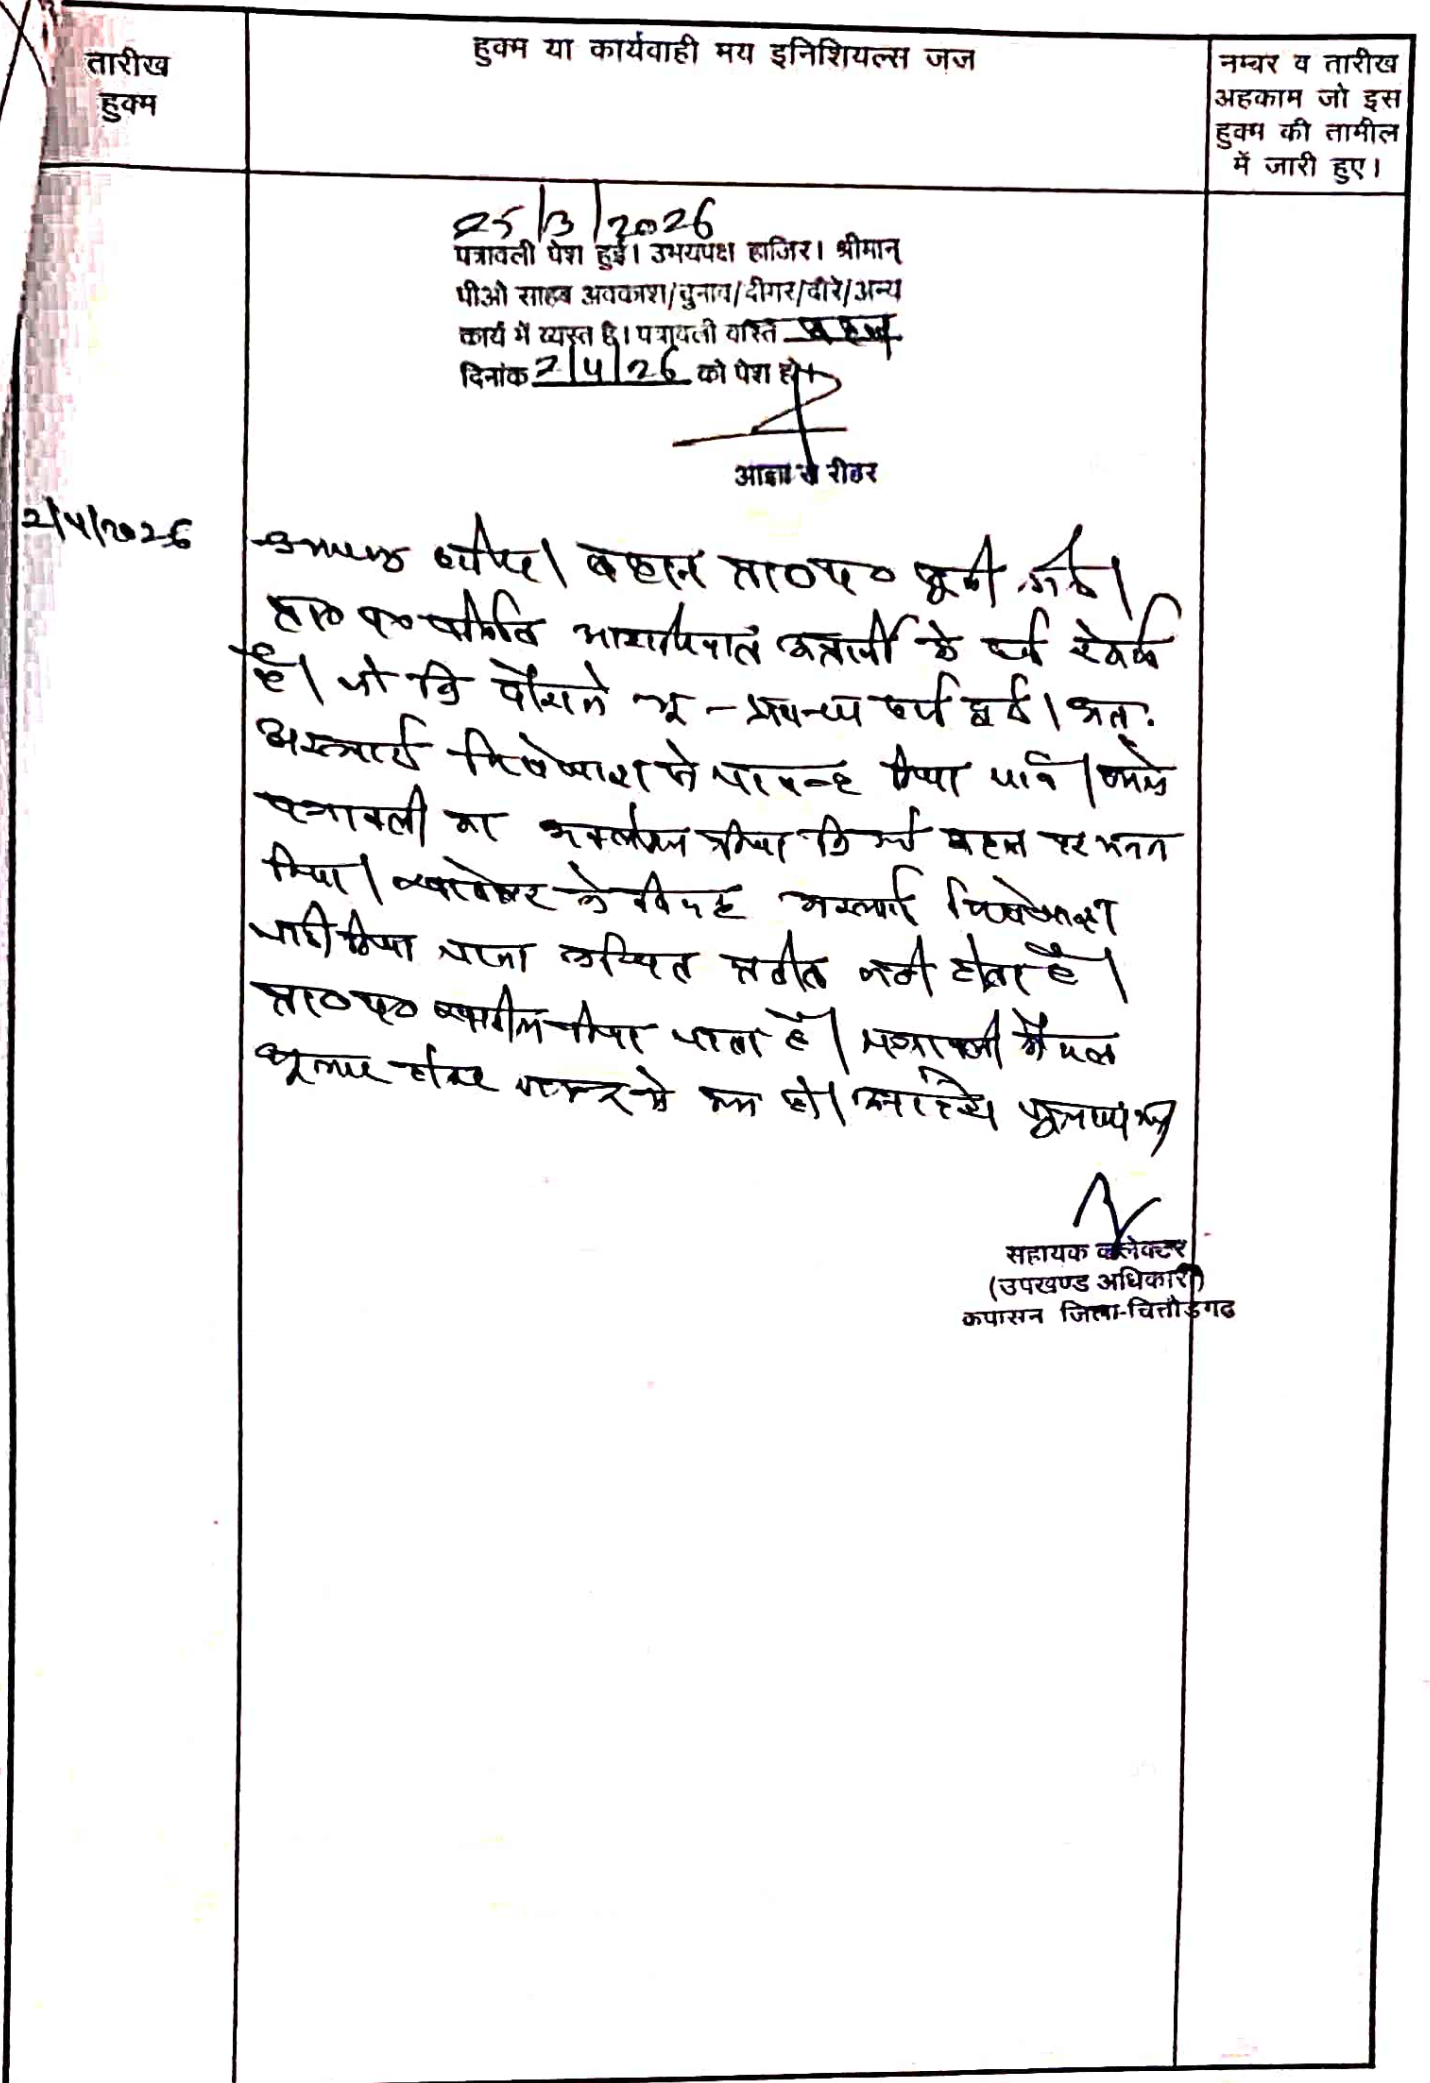 तारीख
हुक्म
हुक्म या कार्यवाही मय इनिशियल्स जज
नम्बर व तारीख
अहकाम जो इस
हुक्म की तामील
में जारी हुए।
25/3/2026
पत्रावली पेश हुई। उभयपक्ष हाजिर। श्रीमान्
पीओ साहब अवकाश/चुनाव/दीगर/दौरे/अन्य
कार्य में व्यस्त है। पत्रावली वास्ते बहस
दिनांक 2/4/26 को पेश हो।
आज्ञा से रीडर
2/4/2026
उभयपक्ष बहस प्रा०प० सुनी गई।
प्रा० प० के दर्ज रेकर्ड
है। जो कि भू-प्रबन्ध दर्ज हुई। अतः
अस्थाई निषेधाज्ञा से पाबन्द किया जावे।
पत्रावली का अवलोकन किया बहस पर मनन
किया। खातेदार के विरुद्ध अस्थाई निषेधाज्ञा
जारी किया जाना उचित प्रतीत नहीं होता है।
प्रा०प० किया जाता है। पत्रावली फैसल
शुमार होकर नम्बर से कम हो।
सहायक कलेक्टर
(उपखण्ड अधिकारी)
कपासन जिला-चित्तौड़गढ